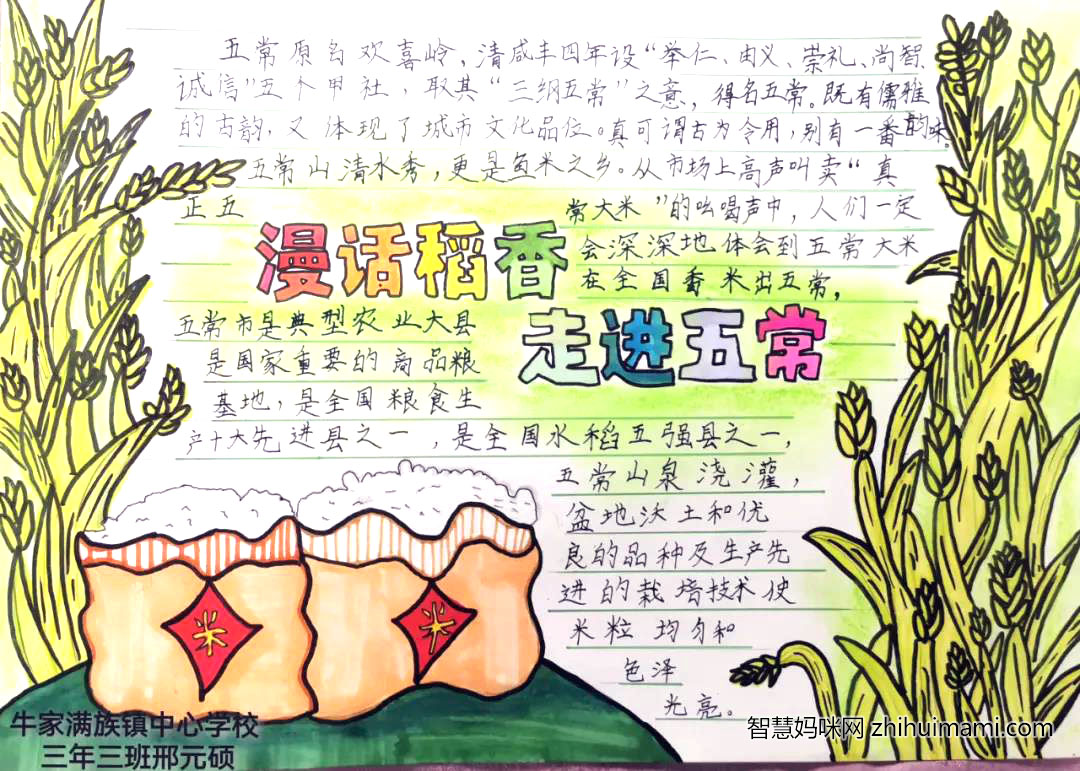 五常原名欢喜岭，清咸丰四年设“举仁、由义、崇礼、尚智
诚信”五个甲社，取其“三纲五常”之意，得名五常。既有儒雅
的古韵，又体现了城市文化品位。真可谓古为今用，别有一番韵味。
五常山清水秀，更是鱼米之乡。从市场上高声叫卖“真
正五常大米”的吆喝声中，人们一定
会深深地体会到五常大米
在全国香米出五常，
漫话稻香
走进五常
五常市是典型农业大县
是国家重要的商品粮
基地，是全国粮食生
产十大先进县之一，是全国水稻五强县之一，
五常山泉浇灌，
盆地沃土和优
良的品种及生产先
进的栽培技术使
米粒均匀和
色泽
光亮。
米
米
牛家满族镇中心学校
三年三班邢元硕
智慧妈咪网 zhihuimami.com